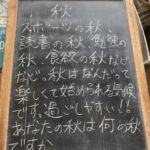 秋
スポーツの秋、
読書の秋、勉強の
秋、食欲の秋など
など。秋はなんだって
楽しくて始められる気候
です。過ごしやすい!!
あなたの秋は何の秋
ですか